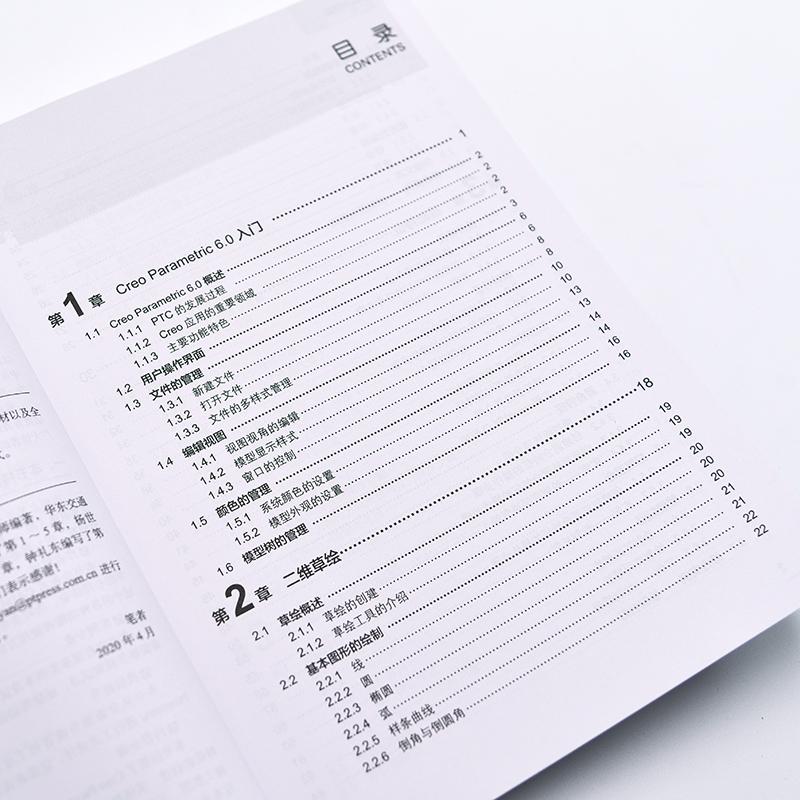 材以及全
师编著，华东交通
了第 1～5 章，杨世
章，钟礼东编写了第
们表示感谢！
yan@ptpress.com.cn 进行
笔者
2020 年 4 月
目 录
CONTENTS
第 1 章 Creo Parametric 6.0 入门 1
1.1 Creo Parametric 6.0 概述
1.1.1 PTC 的发展过程
1.1.2 Creo 应用的重要领域
1.1.3 主要功能特色
1.2 用户操作界面
1.3 文件的管理
1.3.1 新建文件
1.3.2 打开文件
1.3.3 文件的多样式管理
1.4 编辑视图
1.4.1 视图视角的编辑
1.4.2 模型显示样式
1.4.3 窗口的控制
1.5 颜色的管理
1.5.1 系统颜色的设置
1.5.2 模型外观的设置
1.6 模型树的管理
第 2 章 二维草绘 18
2.1 草绘概述
2.1.1 草绘的创建
2.1.2 草绘工具的介绍
2.2 基本图形的绘制
2.2.1 线
2.2.2 圆
2.2.3 椭圆
2.2.4 弧
2.2.5 样条曲线
2.2.6 倒角与倒圆角